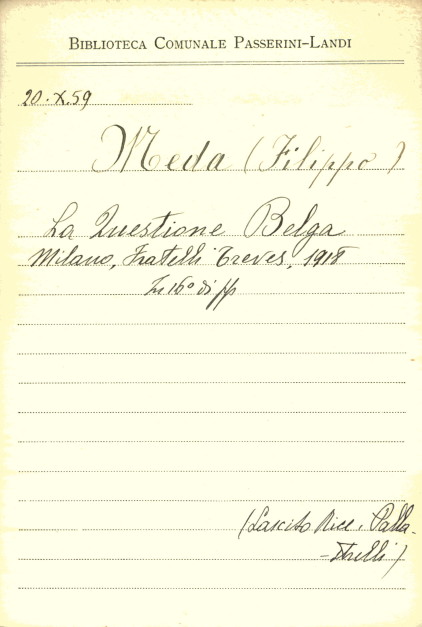 BIBLIOTECA COMUNALE PASSERINI-LANDI
20.X.59
Meda (Filippo)
La Questione Belga
Milano, Fratelli Treves, 1918
In 16° di pp
(Lascito Ricc. Palla-
-strelli)